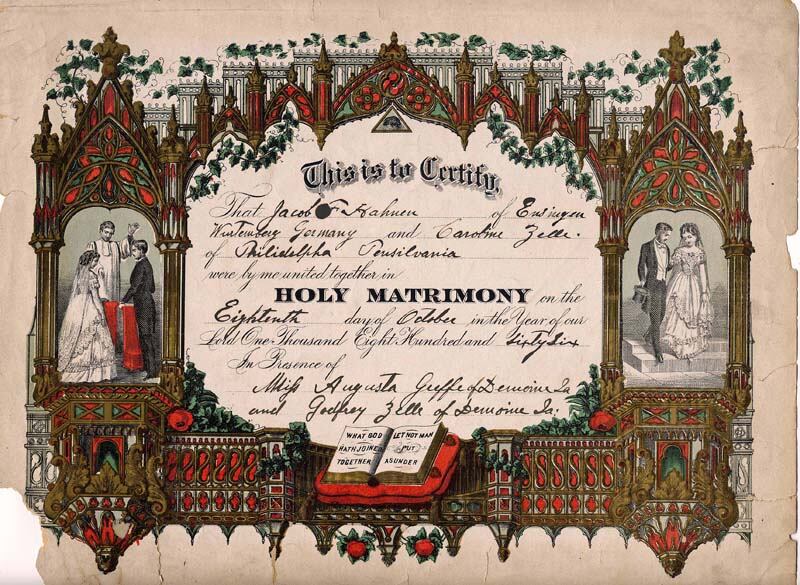 This is to Certify,
That Jacob F Hahnen of Ensingen
Wurtemberg Germany and Caroline Zelle.
of Philidelpha Pensilvania
were by me united together in
HOLY MATRIMONY on the
Eighteenth day of October in the Year of our
Lord One Thousand Eight Hundred and Sixty Six
In Presence of
Miss Augusta of Demoine Ia
and Godfrey Zelle of Demoine Ia.
WHAT GOD
HATH JOINED
TOGETHER
LET NOT MAN
PUT
ASUNDER